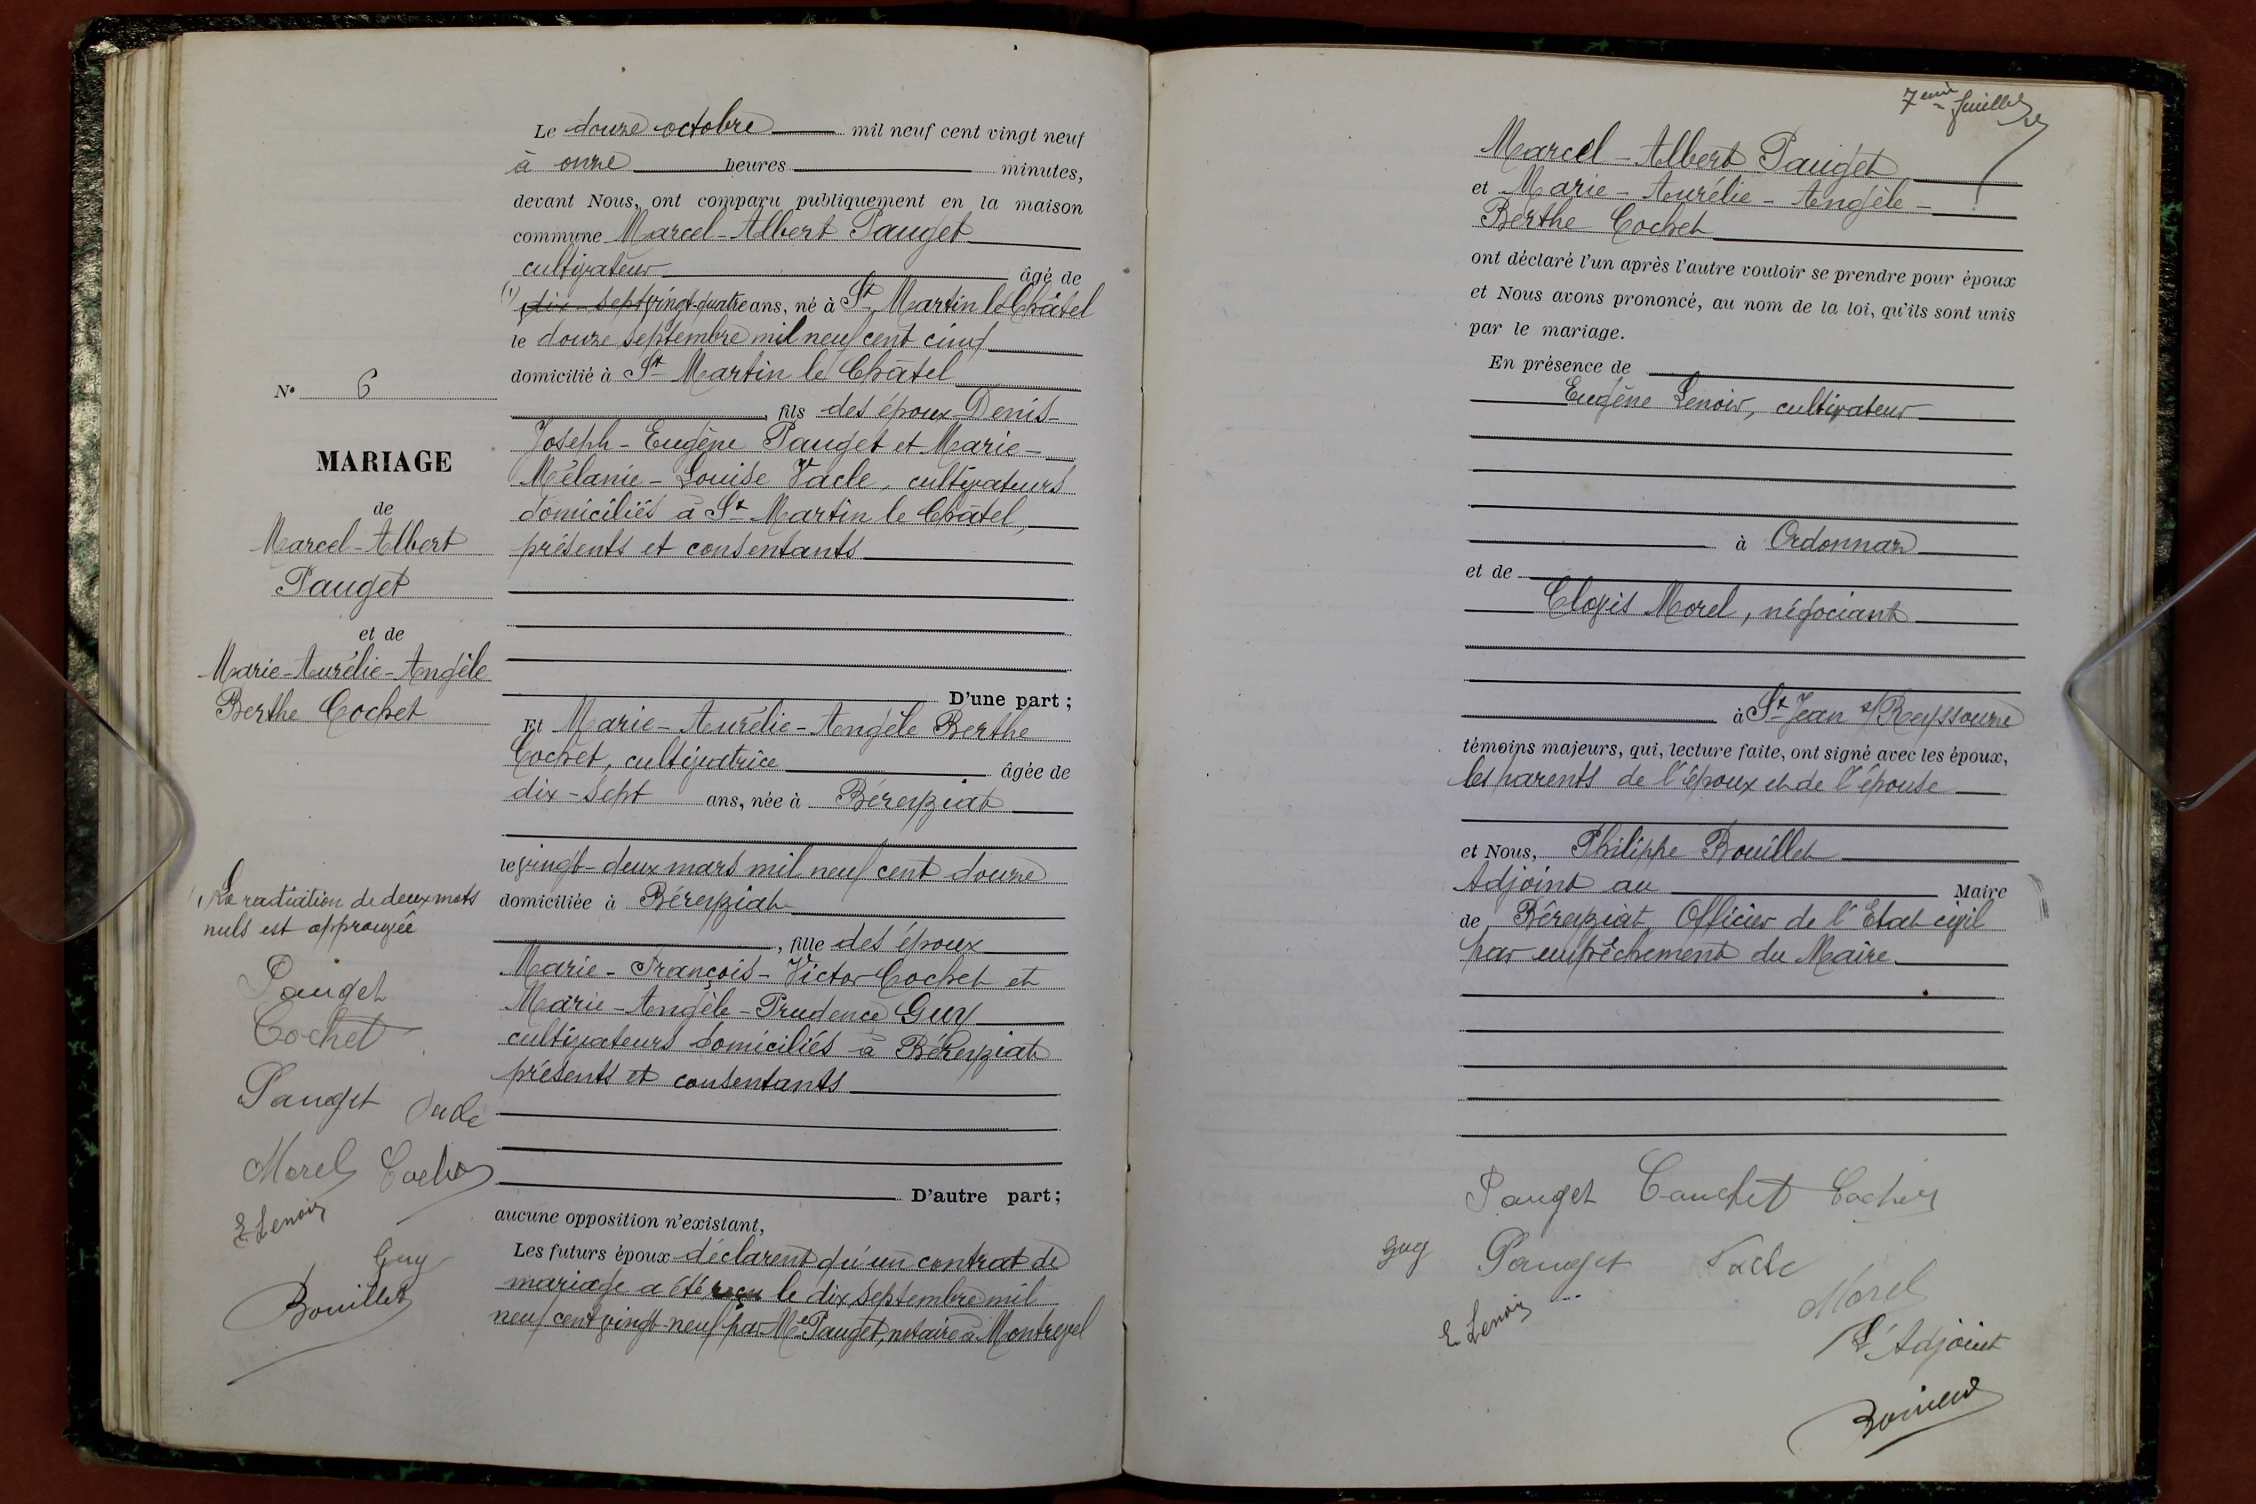 Le douze octobre mil neuf cent vingt neuf
à onze heures minutes,
devant Nous, ont comparu publiquement en la maison
commune Marcel-Albert Pauget
cultivateur âgé de
(1) dix-sept vingt-quatre ans, né à St Martin le Châtel
le douze septembre mil neuf cent cinq
domicilié à St Martin le Châtel
fils des époux Denis-
Joseph-Eugène Pauget et Marie-
Mélanie-Louise Vacle, cultivateurs
domiciliés à St Martin le Châtel,
présents et consentants
D'une part ;
Et Marie-Aurélie-Angèle Berthe
Cochet, cultivatrice âgée de
dix-sept ans, née à Béreyziat
le vingt-deux mars mil neuf cent douze
domiciliée à Béreyziat
, fille des époux
Marie-François-Victor Cochet et
Marie-Angèle-Prudence Guy
cultivateurs domiciliés à Béreyziat
présents et consentants
D'autre part ;
aucune opposition n'existant,
Les futurs époux déclarent qu'un contrat de
mariage a été reçu le dix septembre mil
neuf cent vingt-neuf par Me Pauget, notaire à Montrevel
No 6
MARIAGE
de
Marcel-Albert
Pauget
et de
Marie-Aurélie-Angèle
Berthe Cochet
La radiation de deux mots
nuls est approuvée
Pauget
Cochet
Pauget
Morel Cochet
E Lenoir
Guy
Bouillet
7eme feuillet
Marcel-Albert Pauget
et Marie-Aurélie-Angèle-
Berthe Cochet
ont déclaré l'un après l'autre vouloir se prendre pour époux
et Nous avons prononcé, au nom de la loi, qu'ils sont unis
par le mariage.
En présence de
Eugène Lenoir, cultivateur
à Ordonnaz
et de
Clovis Morel, négociant
à St Jean s/ Reyssouze
témoins majeurs, qui, lecture faite, ont signé avec les époux,
les parents de l'époux et de l'épouse
et Nous, Philippe Bouillet
Adjoint au Maire
de Béreyziat, Officier de l'Etat civil
par empêchement du Maire
Pauget Cauchet Cochet
Guy Pauget Vacle
E Lenoir Morel
L'Adjoint
Bouillet